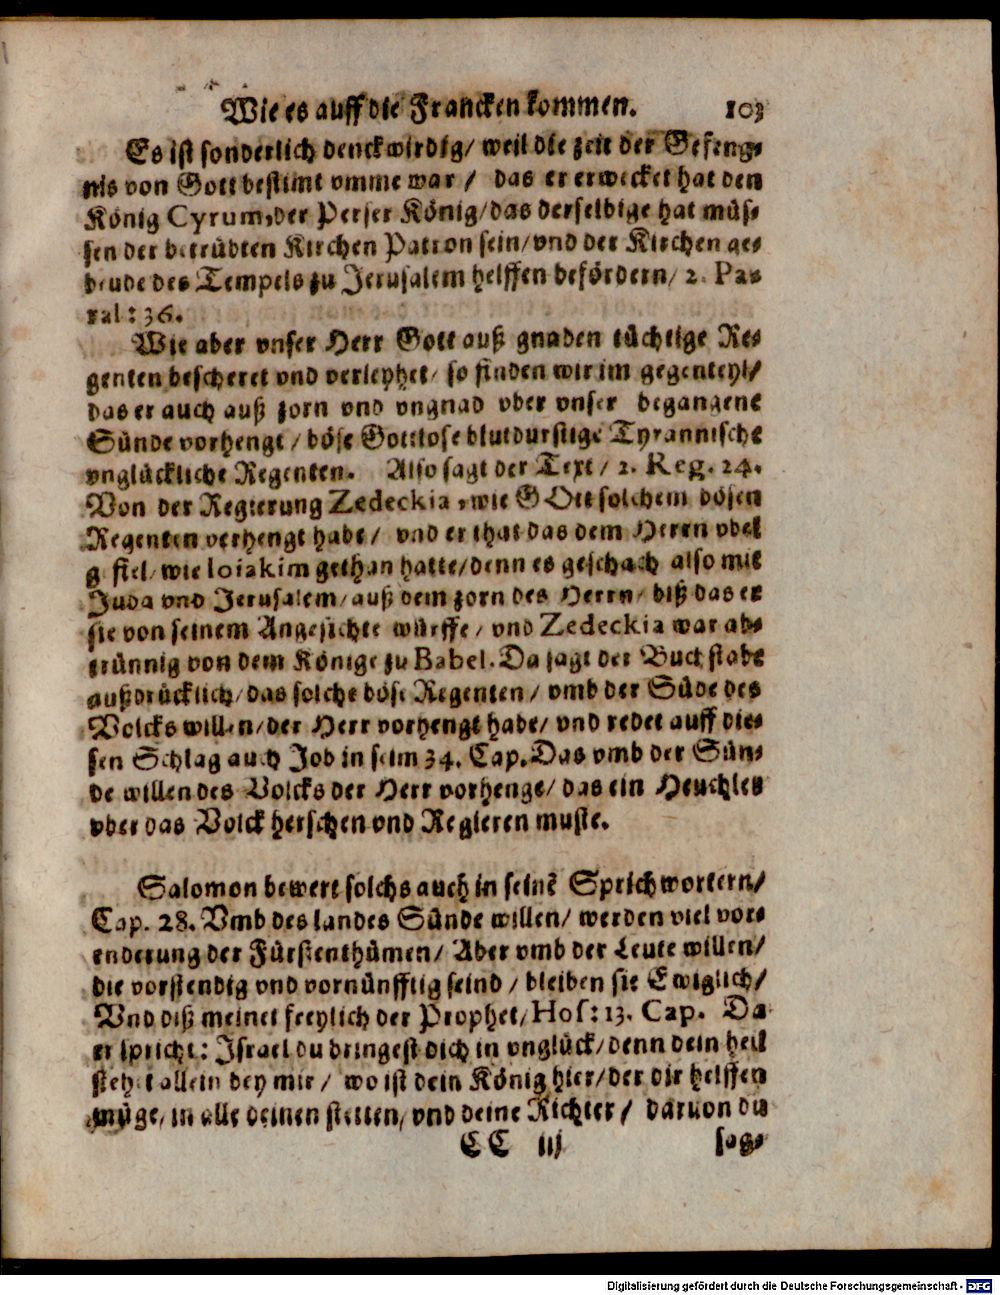 Wie es auff die Francken kommen. 103
Es ist sonderlich denckwirdig/ weil die zeit der Gefeng-
nis von Gott bestimt vmme war / das er erwecket hat den
König Cyrum, der Perser König/ das derselbige hat müs-
sen der betrübten Kirchen Patron sein/ vnd der Kirchen ge-
beude des Tempels zu Jerusalem helffen befördern/ 2. Pa-
ral: 36.
Wie aber vnser Herr Gott auß gnaden tüchtige Re-
genten bescheret vnd verleyhet/ so finden wir im gegenteyl/
das er auch auß zorn vnd vngnad vber vnser begangene
Sünde vorhengt / böse Gottlose blutdurstige Tyrannische
vnglückliche Regenten. Also sagt der Text / 2. Reg. 24.
Von der Regierung Zedeckia, wie GOtt solchem bösen
Regenten verhengt habe/ vnd er that das dem Herrn vbel
gefiel/ wie Ioiakim gethan hatte/ denn es geschach also mit
Juda vnd Jerusalem/ auß dem zorn des Herrn/ biß das er
sie von seinem Angesichte würffe/ vnd Zedeckia war ab-
trünnig von dem Könige zu Babel. Da sagt der Buchstabe
außdrücklich/ das solche böse Regenten/ vmb der Süde des
Volcks willen/ der Herr vorhengt habe/ vnd redet auff die-
sen Schlag auch Job in seim 34. Cap. Das vmb der Sün-
de willen des Volcks der Herr vorhenge/ das ein Heuchler
vber das Volck herschen vnd Regieren muste.
Salomon bewert solchs auch in seinē Sprichwortern/
Cap. 28. Vmb des landes Sünde willen/ werden viel vor-
enderung der Fürstenthümen/ Aber vmb der Leute willen/
die vorstendig vnd vornünfftig seind / bleiben sie Ewiglich/
Vnd diß meinet freylich der Prophet/ Hos: 13. Cap. Da
er spricht: Israel du bringest dich in vnglück/ denn dein heil
stehet allein bey mir / wo ist dein König hier/ der dir helffen
müge/ in alle deinen stetten/ vnd deine Richter / daruon du
CC iij sag-
Digitalisierung gefördert durch die Deutsche Forschungsgemeinschaft - DFG